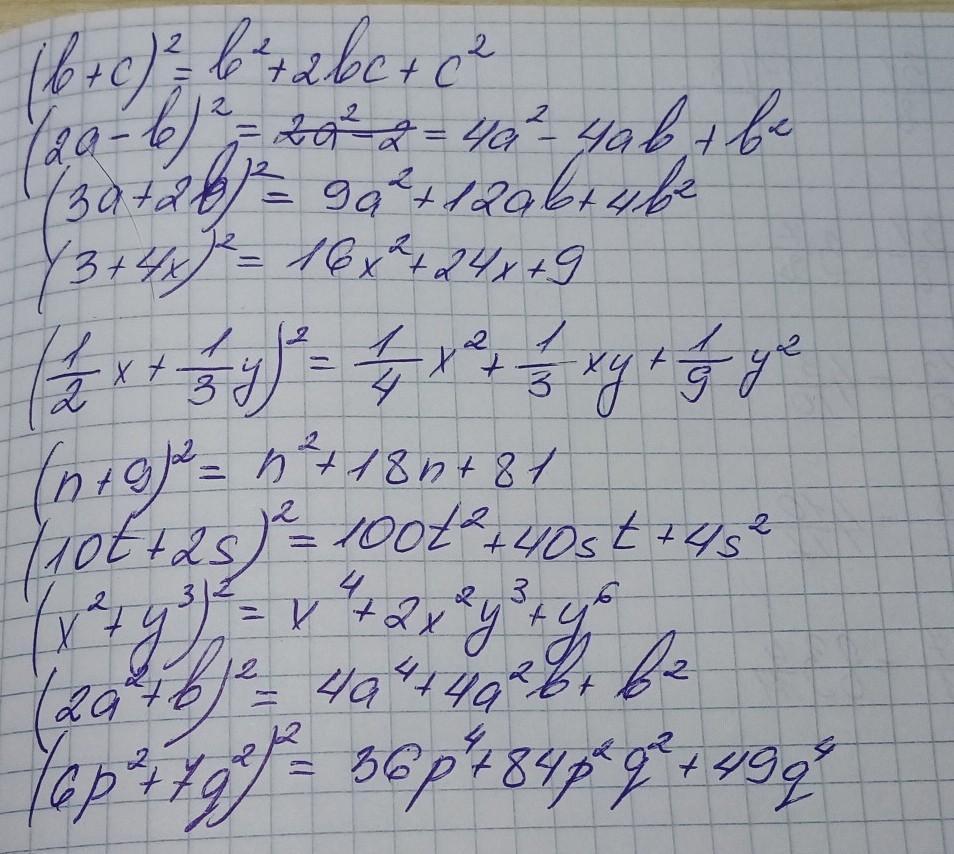 (b+c)² = b² + 2bc + c²
(2a-b)² = 2a² - 2 = 4a² - 4ab + b²
(3a+2b)² = 9a² + 12ab + 4b²
(3+4x)² = 16x² + 24x + 9
(1/2 x + 1/3 y)² = 1/4 x² + 1/3 xy + 1/9 y²
(n+9)² = n² + 18n + 81
(10t+2s)² = 100t² + 40st + 4s²
(x²+y³)² = x⁴ + 2x²y³ + y⁶
(2a²+b)² = 4a⁴ + 4a²b + b²
(6p²+7q²)² = 36p⁴ + 84p²q² + 49q⁴